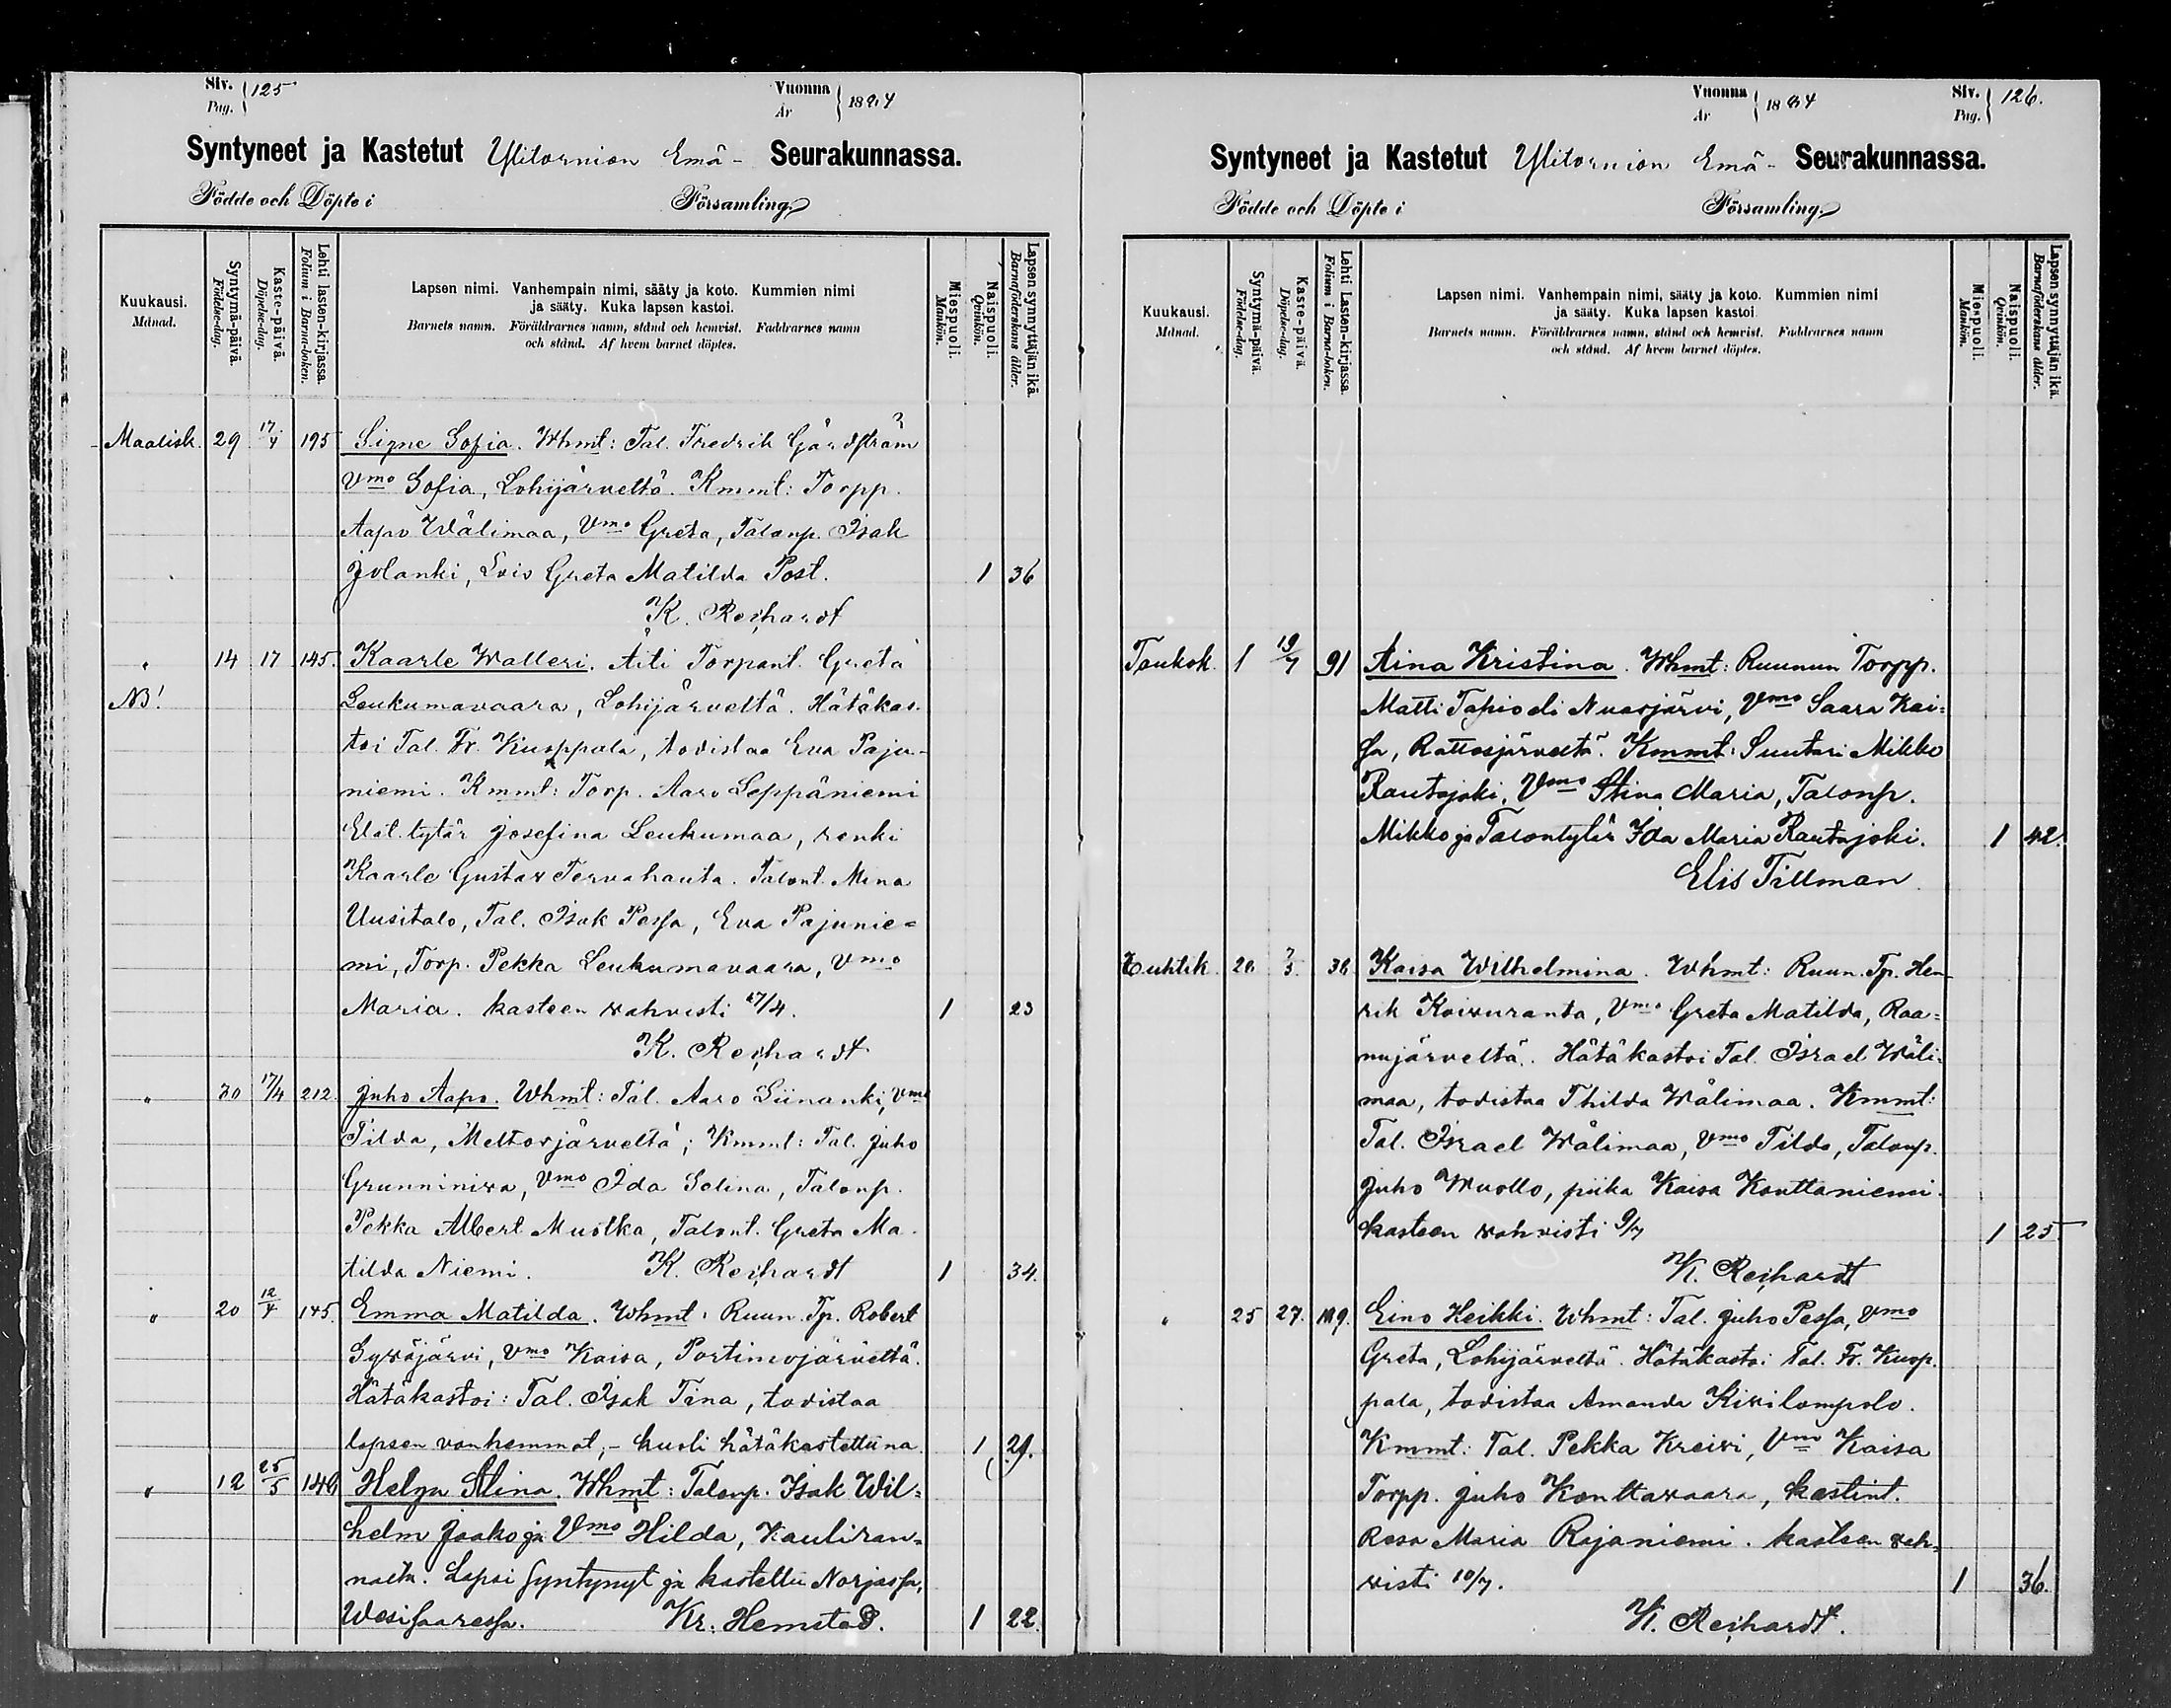 Siv. 125
Pag.
Vuonna 1894
År
Syntyneet ja Kastetut Ylitornion Emä- Seurakunnassa.
Födde och Döpte i Församling.
Kuukausi.
Månad.
Syntymä-päivä.
Födelse-dag.
Kaste-päivä.
Döpelse-dag.
Lehti lasten-kirjassa.
Folium i Barna-boken.
Lapsen nimi. Vanhempain nimi, sääty ja koto. Kummien nimi
ja sääty. Kuka lapsen kastoi.
Barnets namn. Föräldrarnes namn, stånd och hemvist. Faddrarnes namn
och stånd. Af hvem barnet döptes.
Miespuoli.
Mankön.
Naispuoli.
Qvinkön.
Lapsen synnyttäjän ikä.
Barnaföderskans ålder.
Maalisk. 29 17/4 195 Signe Sofia. Whmt: Tal. Fredrik Gårdström
Vmo Sofia, Lohijärveltä. Kmmt: Torpp.
Aapo Wälimaa, Vmo Greta, Talonp. Isak
Jolanki, Lois Greta Matilda Post. 1 36
K. Reihardt
" 14 17 145. Kaarle Walleri. Äiti Torpant. Greta
NB! Leukumavaara, Lohijärveltä. Hätäkas-
toi Tal. Fr. Kuoppala, todistaa Eva Paju-
niemi. Kmmt: Torp. Aaro Leppäniemi
Elät. tytär Josefina Leukumaa, renki
Kaarle Gustav Tervahauta. Talont. Mina
Uusitalo, Tal. Isak Pessa, Eva Pajunie-
mi, Torp. Pekka Leukumavaara, Vmo
Maria. kasteen vahvisti 17/4. 1 23
K. Reihardt
" 30 17/4 212 Juho Aapo. Whmt: Tal. Aaro Liinanki, Vmo
Tilda, Meltosjärveltä; Kmmt: Tal. Juho
Grunniniva, Vmo Ida Selina, Talonp.
Pekka Albert Mustka, Talont. Greta Ma-
tilda Niemi. K. Reihardt 1 34.
" 20 12/4 145. Emma Matilda. Whmt: Ruun. Tp. Robert
Syväjärvi, Vmo Kaisa, Portimojärveltä.
Hätäkastoi: Tal. Isak Tina, todistaa
lapsen vanhemmat,- kuoli hätäkastettuna. 1 29.
" 12 25/5 148 Helga Stina. Whmt: Talonp. Isak Wil-
helm Jaako ja Vmo Hilda, Kauliran-
nalta. Lapsi syntynyt ja kastettu Norjassa,
Wesisaaressa. Kr. Hemstad. 1 22.
Vuonna 1894
År
Siv. 126.
Pag.
Syntyneet ja Kastetut Ylitornion Emä- Seurakunnassa.
Födde och Döpte i Församling.
Kuukausi.
Månad.
Syntymä-päivä.
Födelse-dag.
Kaste-päivä.
Döpelse-dag.
Lehti Lasten-kirjassa.
Folium i Barna-boken.
Lapsen nimi. Vanhempain nimi, sääty ja koto. Kummien nimi
ja sääty. Kuka lapsen kastoi.
Barnets namn. Föräldrarnes namn, stånd och hemvist. Faddrarnes namn
och stånd. Af hvem barnet döptes.
Miespuoli.
Mankön.
Naispuoli.
Qvinkön.
Lapsen synnyttäjän ikä.
Barnaföderskans ålder.
Toukok. 1 19/7 91 Aina Kristina. Whmt: Ruunun Torpp.
Matti Tapio eli Nuasjärvi, Vmo Saara Kai-
sa, Rattosjärveltä. Kmmt: Suutari Mikko
Rautajoki, Vmo Stina Maria, Talonp.
Mikko ja Talontytär Ida Maria Rautajoki. 1 42.
Elis Tillman.
Huhtik. 20 38 Kaisa Wilhelmina. Whmt: Ruun. Tp. Hen-
rik Koivuranta, Vmo Greta Matilda, Raa-
nujärveltä. Hätäkastoi Tal. Israel Wäli-
maa, todistaa Thilda Wälimaa. Kmmt:
Tal. Israel Wälimaa, Vmo Tilda, Talonp.
Juho Wuollo, piika Kaisa Konttaniemi.
kasteen vahvisti 9/7 1 25
K. Reihardt
" 25 27. 119. Eino Heikki. Whmt: Tal. Juho Pessa, Vmo
Greta, Lohijärveltä. Hätäkastoi Tal. Fr. Kuop-
pala, todistaa Amanda Kivilompolo.
Kmmt: Tal. Pekka Kreivi, Vmo Kaisa
Torpp. Juho Konttavaara, kestint.
Rosa Maria Rajaniemi. kasteen vah-
visti 10/7. 1 36.
K. Reihardt.